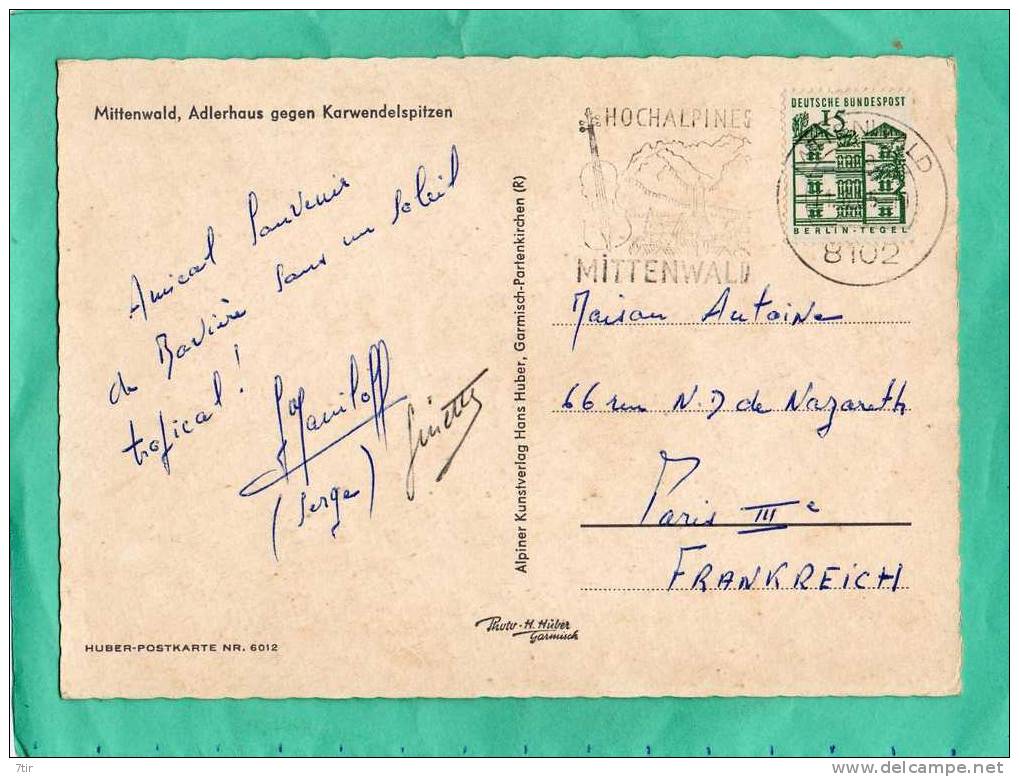 Mittenwald, Adlerhaus gegen Karwendelspitzen
Amical Souvenir
de Bavière sans un soleil
tropical !
(Serge)
HUBER-POSTKARTE NR. 6012
Alpiner Kunstverlag Hans Huber, Garmisch-Partenkirchen (R)
Photo-H. Huber
Garmisch
HOCHALPINES
MITTENWALD
DEUTSCHE BUNDESPOST
15
BERLIN-TEGEL
8102
Maison Antoine
66 rue N.D de Nazareth
Paris IIIe
FRANKREICH
7tir
www.delcampe.net